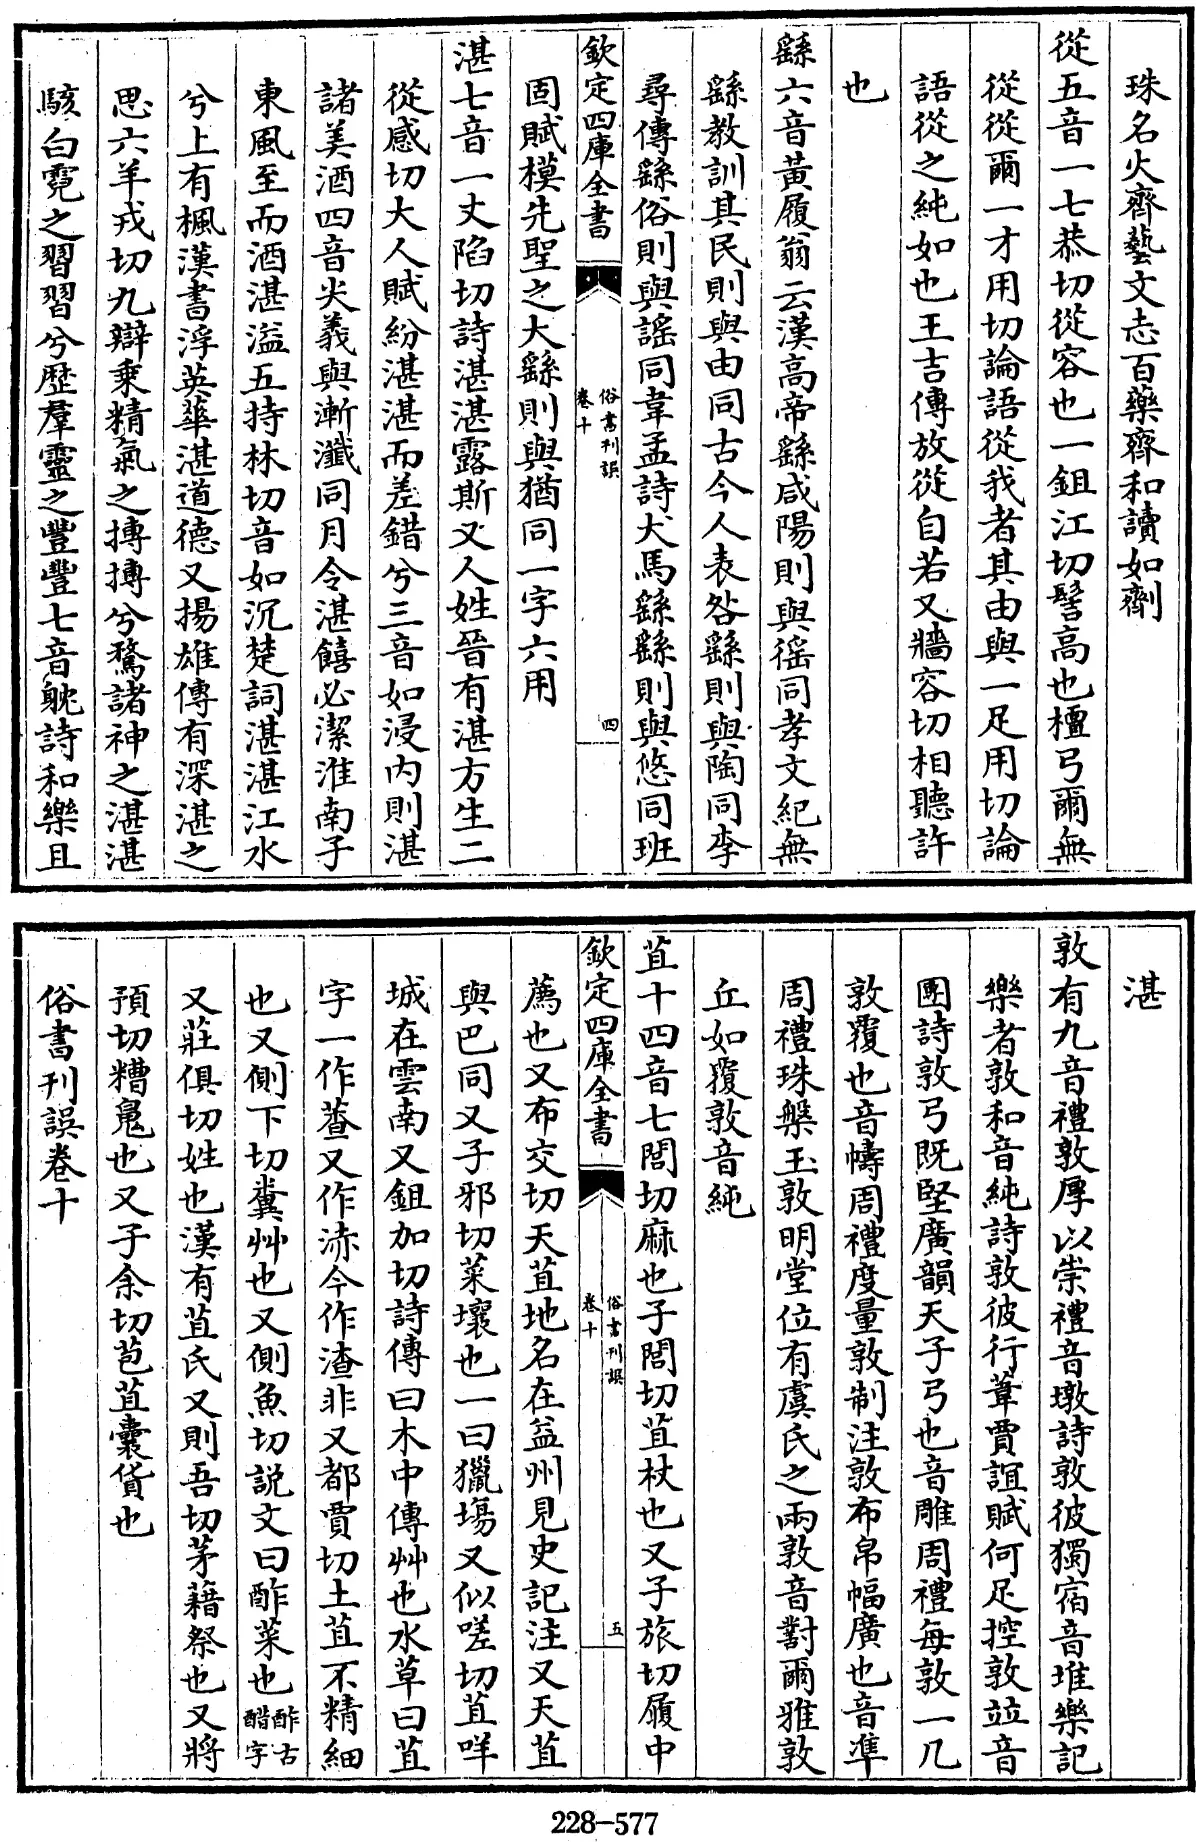 珠名火齊藝文志百藥齊和讀如劑
從五音一七恭切從容也一鉏江切髻高也檀弓爾無
從從爾一才用切論語從我者其由與一足用切論
語從之純如也王吉傳放從自若又牆容切相聽許
也
繇六音黃履翁云漢高帝繇咸陽則與徭同孝文紀無
繇教訓其民則與由同古今人表咎繇則與陶同李
尋傳繇俗則與謠同韋孟詩犬馬繇繇則與悠同班
欽定四庫全書
俗書刊誤
卷十
四
固賦模先聖之大繇則與猶同一字六用
湛七音一丈陷切詩湛湛露斯又人姓晉有湛方生二
從感切大人賦紛湛湛而差錯兮三音如浸内則湛
諸美酒四音尖義與漸瀸同月令湛饎必潔淮南子
東風至而酒湛溢五持林切音如沉楚詞湛湛江水
兮上有楓漢書浮英華湛道德又揚雄傳有深湛之
思六羊戎切九辯乗精氣之摶摶兮騖諸神之湛湛
駭白霓之習習兮歴羣靈之豐豐七音躭詩和樂且
湛
敦有九音禮敦厚以崇禮音墩詩敦彼獨宿音堆樂記
樂者敦和音純詩敦彼行葦賈誼賦何足控敦竝音
團詩敦弓既堅廣韻天子弓也音雕周禮每敦一几
敦覆也音幬周禮度量敦制注敦布帛幅廣也音凖
周禮珠槃玉敦明堂位有虞氏之兩敦音對爾雅敦
丘如覆敦音純
苴十四音七閭切麻也子閭切苴杖也又子旅切履中
欽定四庫全書
俗書刊誤
卷十
五
薦也又布交切天苴地名在益州見史記注又天苴
與巴同又子邪切菜壤也一曰獵塲又似嗟切苴咩
城在雲南又鉏加切詩傳曰木中傳艸也水草曰苴
字一作蒩又作渿今作渣非又都賈切土苴不精細
也又側下切糞艸也又側魚切説文曰酢菜也酢古
醋字
又莊俱切姓也漢有苴氏又則吾切茅藉祭也又將
預切糟䰟也又子余切苞苴囊貨也
俗書刊誤卷十
228-577